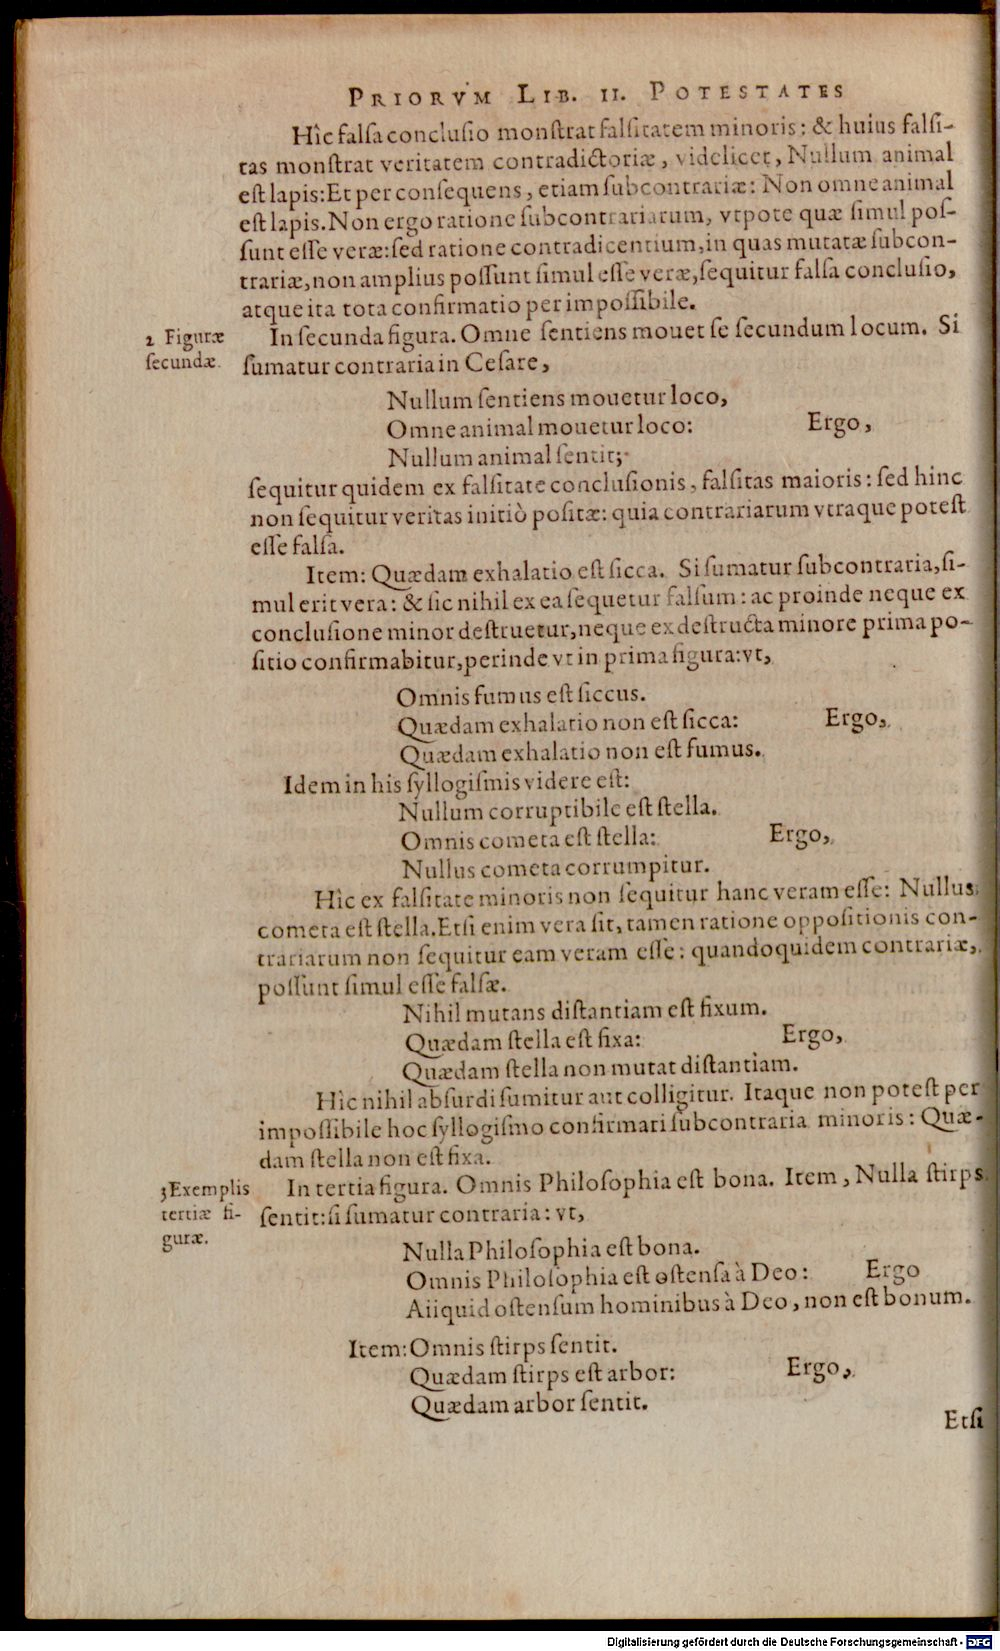 PRIORVM LIB. II. POTESTATES
Hìc falsa conclusio monstrat falsitatem minoris: & huius falsi-
tas monstrat veritatem contradictoriæ, videlicet, Nullum animal
est lapis: Et per consequens, etiam subcontrariæ: Non omne animal
est lapis. Non ergo ratione subcontrariarum, vtpote quæ simul pos-
sunt esse veræ: sed ratione contradicentium, in quas mutatæ subcon-
trariæ, non amplius possunt simul esse veræ, sequitur falsa conclusio,
atque ita tota confirmatio per impossibile.
2 Figuræ
secundæ.
In secunda figura. Omne sentiens mouet se secundum locum. Si
sumatur contraria in Cesare,
Nullum sentiens mouetur loco,
Omne animal mouetur loco: Ergo,
Nullum animal sentit;
sequitur quidem ex falsitate conclusionis, falsitas maioris: sed hinc
non sequitur veritas initiò positæ: quia contrariarum vtraque potest
esse falsa.
Item: Quædam exhalatio est sicca. Si sumatur subcontraria, si-
mul erit vera: & sic nihil ex ea sequetur falsum: ac proinde neque ex
conclusione minor destruetur, neque ex destructa minore prima po-
sitio confirmabitur, perinde vt in prima figura: vt,
Omnis fumus est siccus.
Quædam exhalatio non est sicca: Ergo,
Quædam exhalatio non est fumus.
Idem in his syllogismis videre est:
Nullum corruptibile est stella.
Omnis cometa est stella: Ergo,
Nullus cometa corrumpitur.
Hìc ex falsitate minoris non sequitur hanc veram esse: Nullus
cometa est stella. Etsi enim vera sit, tamen ratione oppositionis con-
trariarum non sequitur eam veram esse: quandoquidem contrariæ,
possunt simul esse falsæ.
Nihil mutans distantiam est fixum.
Quædam stella est fixa: Ergo,
Quædam stella non mutat distantiam.
Hìc nihil absurdi sumitur aut colligitur. Itaque non potest per
impossibile hoc syllogismo confirmari subcontraria minoris: Quæ-
dam stella non est fixa.
3 Exemplis
tertiæ fi-
guræ.
In tertia figura. Omnis Philosophia est bona. Item, Nulla stirps
sentit: si sumatur contraria: vt,
Nulla Philosophia est bona.
Omnis Philosophia est ostensa à Deo: Ergo
Aiiquid ostensum hominibus à Deo, non est bonum.
Item: Omnis stirps sentit.
Quædam stirps est arbor: Ergo,
Quædam arbor sentit.
Etsi
Digitalisierung gefördert durch die Deutsche Forschungsgemeinschaft - DFG